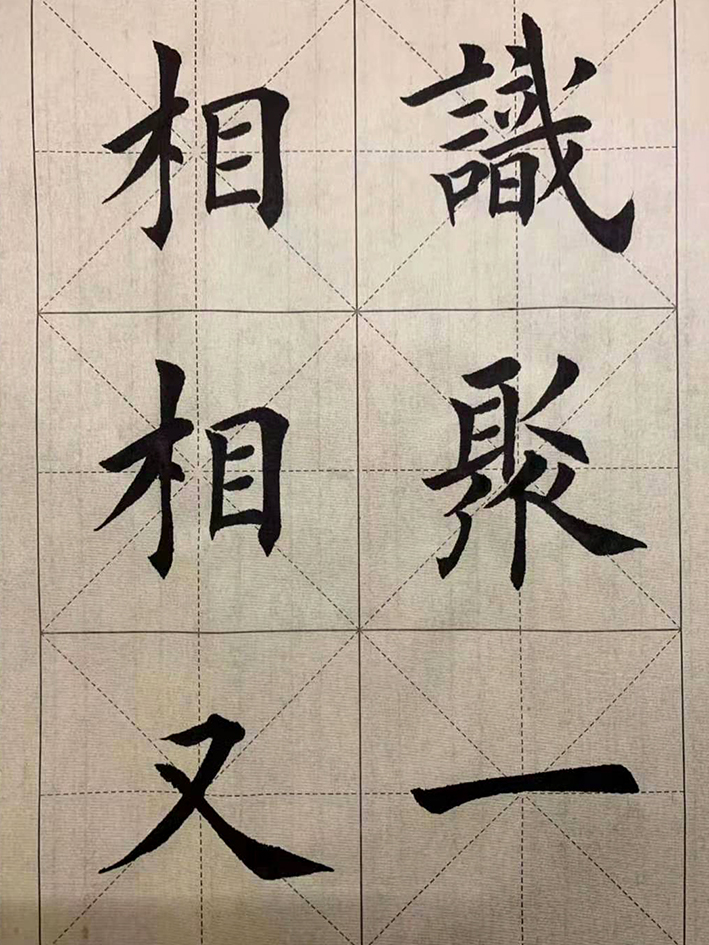 相識
相聚
又一